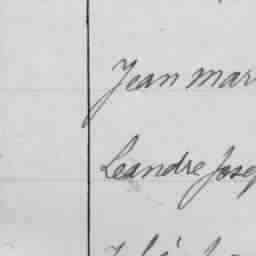 Jean mar
Leandre Josep